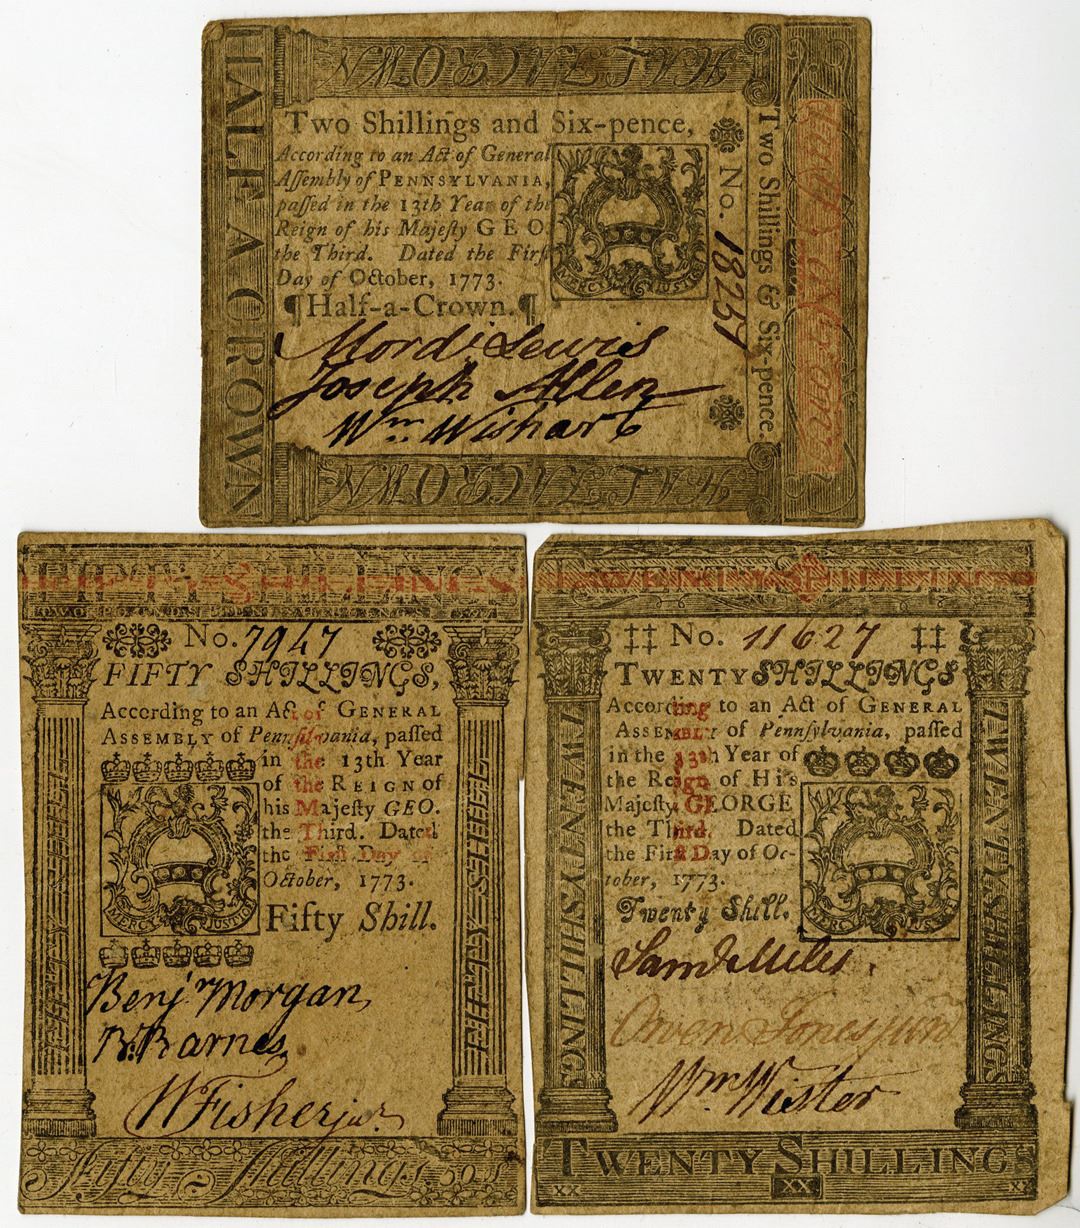 HALF A CROWN
HALF A CROWN
Two Shillings and Six-pence,
According to an Act of General
Aſſembly of PENNSYLVANIA,
paſſed in the 13th Year of the
Reign of his Majeſty GEO.
the Third. Dated the Firſt
Day of October, 1773.
¶Half-a-Crown.¶
MERCY JUSTICE
No. 18257
Two Shillings & Six-pence.
Mord: Lewis
Joseph Allen
Wm. Wishart
HALF A CROWN
FIFTY SHILLINGS
No. 7947
FIFTY SHILLINGS,
According to an Act of GENERAL
ASSEMBLY of Pennſilvania, paſſed
in the 13th Year
of the REIGN of
his Majeſty GEO.
the Third. Dated
the Firſt Day of
October, 1773.
MERCY JUSTICE
Fifty Shill.
Benj. Morgan,
B. Barnes
W Fisher jur.
FIFTY SHILL
FIFTY SHILL
Fifty Shillings 50 s
TWENTY SHILLINGS
‡‡ No. 11627 ‡‡
TWENTY SHILLINGS
According to an Act of GENERAL
ASSEMBLY of Pennſylvania, paſſed
in the 13th Year of
the Reign of His
Majeſty GEORGE
the Third. Dated
the Firſt Day of Oc-
tober, 1773.
Twenty Shill.
MERCY JUS
Saml Miles
Owen Jones junr
Wm. Wister
TWENTY SHILLINGS
TWENTY SHILLINGS
TWENTY SHILLINGS
XX XX XX